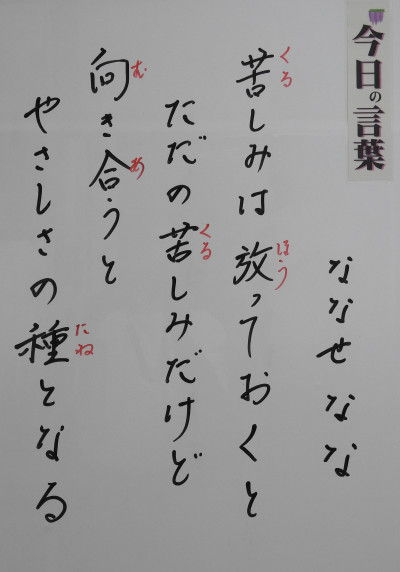 今日の言葉
ななせなな
苦しみは放っておくと
くる
ほう
ただの苦しみだけど
くる
向き合うと
む
あ
やさしさの種となる
たね